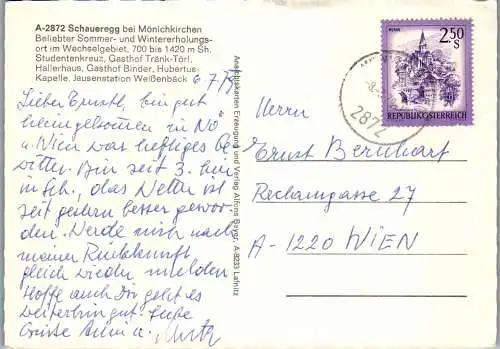 A-2872 Schaueregg bei Mönichkirchen
Beliebter Sommer- und Wintererholungs-
ort im Wechselgebiet, 700 bis 1420 m Sh.
Studentenkreuz, Gasthof Tränk-Törl,
Hallerhaus, Gasthof Binder, Hubertus-
Kapelle, Jausenstation Weißenbäck
6. 7.
Lieber Ernstl, bin gut
heimgekommen in NÖ
u. Wien war heftiges Ge-
witter. Bin seit 3. hier
in Sch., das Wetter ist
seit gestern besser gewor-
den. Werde mich nach
meiner Rückkunft
gleich wieder melden
Hoffe auch Dir geht es
weiterhin gut. Liebe
Grüße
Ansichtskarten Erzeugung und Verlag Alfons Bayer, A-8233 Lafnitz
2.50
S
REPUBLIK ÖSTERREICH
2872
Herrn
Ernst Bernhart
Rechamgasse 27
A-1220 WIEN